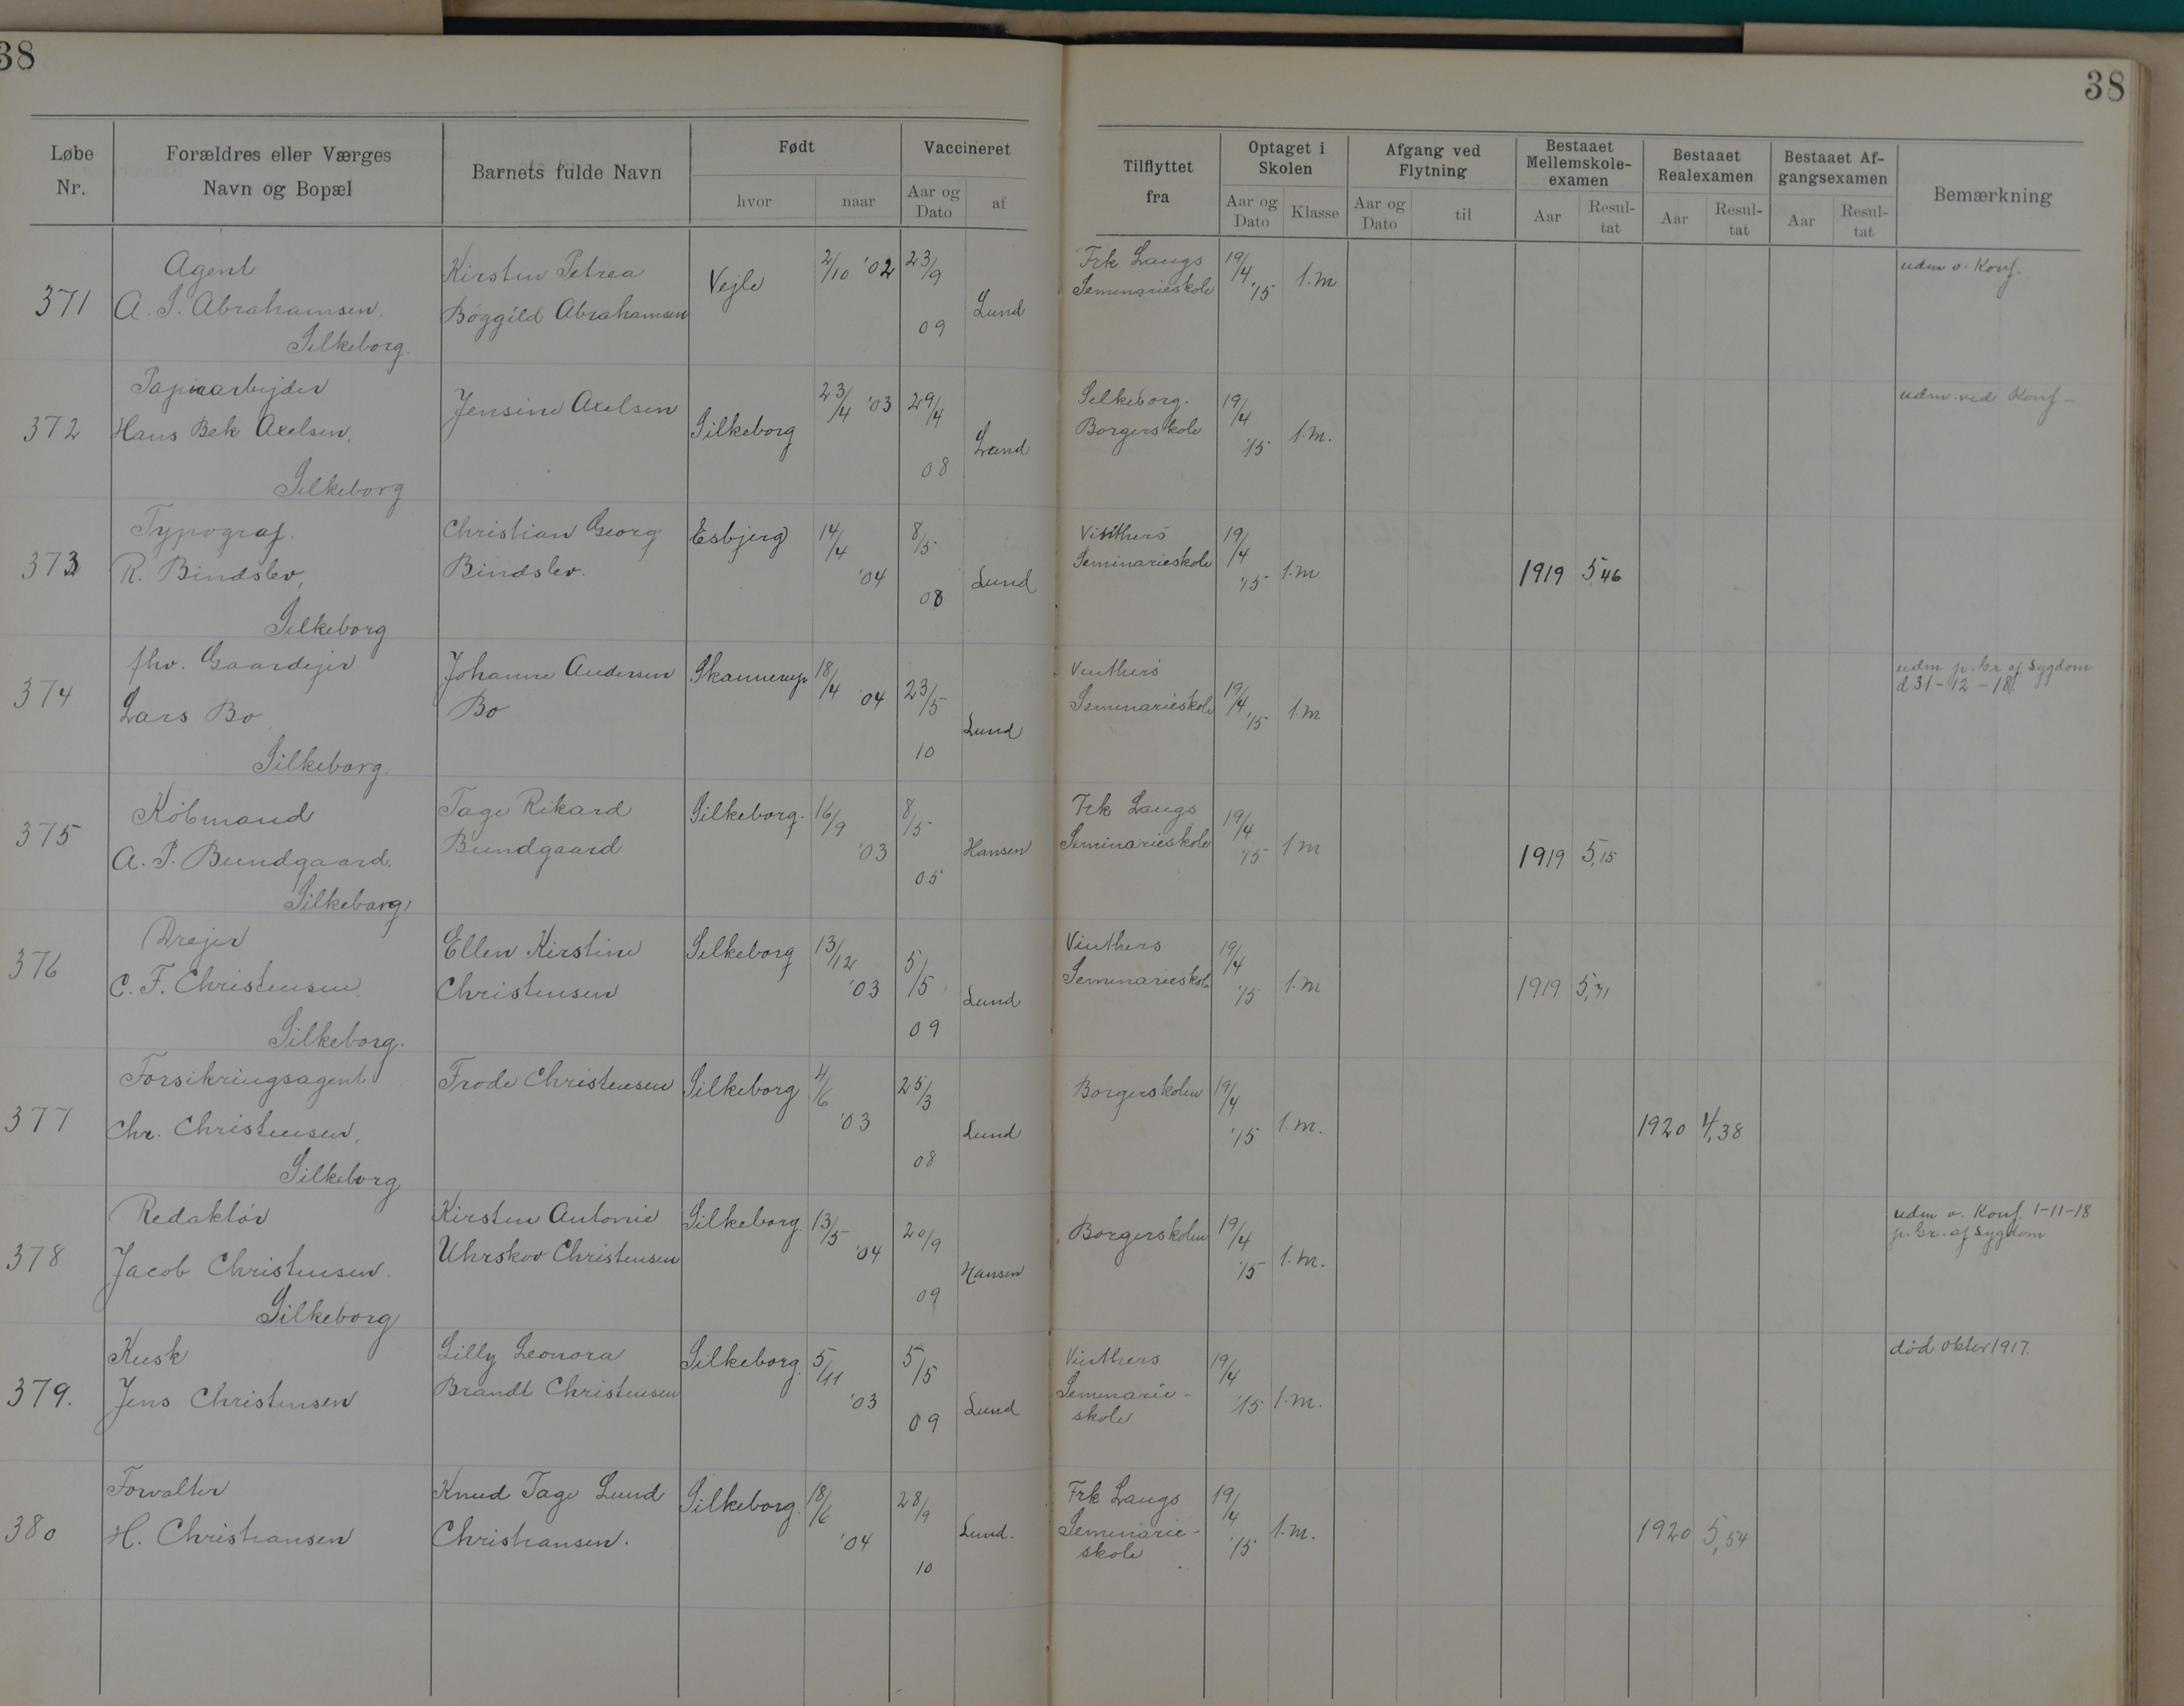 38
38
Løbe Nr.
Forældres eller Værges Navn og Bopæl
Barnets fulde Navn
Født
hvor
naar
Vaccineret
Aar og Dato
af
Tilflyttet fra
Optaget i Skolen
Aar og Dato
Klasse
Afgang ved Flytning
Aar og Dato
til
Bestaaet Mellemskole-examen
Aar
Resul-tat
Bestaaet Realexamen
Aar
Resul-tat
Bestaaet Af-gangsexamen
Aar
Resul-tat
Bemærkning
371
Agent
A. P. Abrahamsen,
Silkeborg.
Kirsten Petrea
Bøggild Abrahamsen
Vejle
2/10 '02
23/9
09
Lund
Frk Langs
Seminarieskole
19/4 '15
1. m
udm v. Konf.
372
Papirarbejder
Hans Bek Axelsen,
Silkeborg
Jensine Axelsen
Silkeborg
23/4 '03
29/4
08
Lund
Silkeborg.
Borgerskole
19/4
'15
1. m.
udm ved Konf –
373
Typograf.
R. Bindslev,
Silkeborg
Christian Georg
Bindslev.
Esbjerg
14/4
'04
8/5
08
Lund
Vinthers
Seminarieskole
19/4
'15
1. m
1919
5,46
374
fhv. Gaardejer
Lars Bo
Silkeborg.
Johanne Andersen
Bo
Skannerup
18/4 '04
23/5
10
Lund
Vinthers
Seminarieskole
19/4 '15
1. m
udm p. Gr af Sygdom
d 31 – 12 – 18.
375
Købmand
A. P. Bundgaard,
Silkeborg,
Tage Rikard
Bundgaard
Silkeborg.
16/9
'03
8/5
05
Hansen
Frk Langs
Seminarieskole
19/4
'15
1 m
1919
5,15
376
Drejer
C. F. Christensen,
Silkeborg.
Ellen Kirstine
Christensen
Silkeborg
13/12
'03
5/5
09
Lund
Vinthers
Seminarieskole
19/4
'15
1. m
1919
5,71
377
Forsikringsagent
Chr. Christensen,
Silkeborg
Frode Christensen
Silkeborg
4/6
'03
25/3
08
Lund
Borgerskolen
19/4
'15
1. m.
1920
4,38
378
Redaktør
Jacob Christensen.
Silkeborg
Kirsten Antonie
Uhrskov Christensen
Silkeborg.
13/5
'04
20/9
09
Hansen
Borgerskolen
19/4
'15
1. m.
udm v. Konf. 1-11-18
p. Gr. af Sygdom
379.
Kusk
Jens Christensen
Lilly Leonora
Brandt Christensen
Silkeborg.
5/11
'03
5/5
09
Lund
Vinthers
Seminarie-
skole
19/4
'15
1. m.
død Oktbr 1917.
380
Forvalter
H. Christiansen
Knud Tage Lund
Christiansen.
Silkeborg.
18/6
'04
28/9
10
Lund.
Frk Langs
Seminarie-
skole
19/4
'15
1. m.
1920
5,54